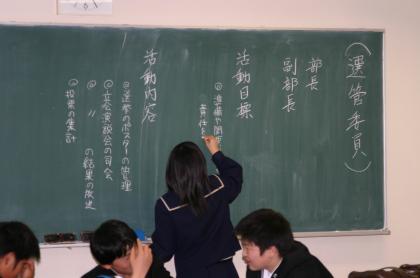 (選管委員)
部長
副部長
活動目標
◎準備や開
責任を
活動内容
◎選挙のポスターの管理
◎立会演説会の司会
◎　〃　の結果の放送
◎投票の集計